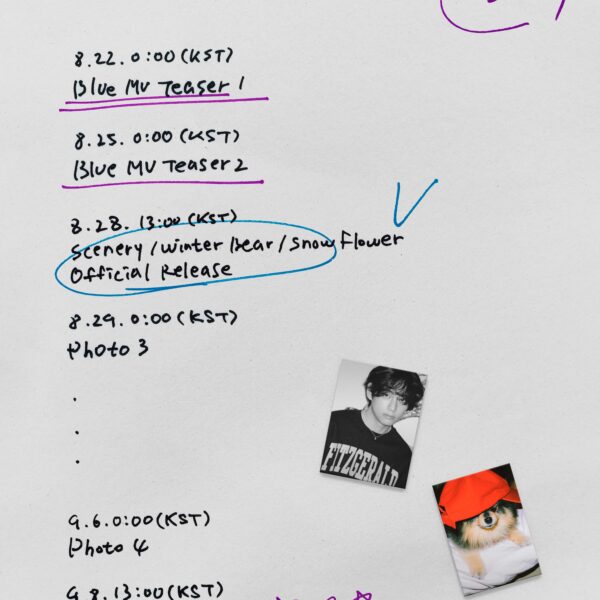 8.22. 0:00 (KST)
Blue MV Teaser 1
8.25. 0:00 (KST)
Blue MV Teaser 2
8.28. 13:00 (KST)
Scenery / Winter Bear / Snow Flower
Official Release
8.29. 0:00 (KST)
Photo 3
.
.
.
FITZGERALD
9.6. 0:00 (KST)
Photo 4
9.8. 13:00 (KST)